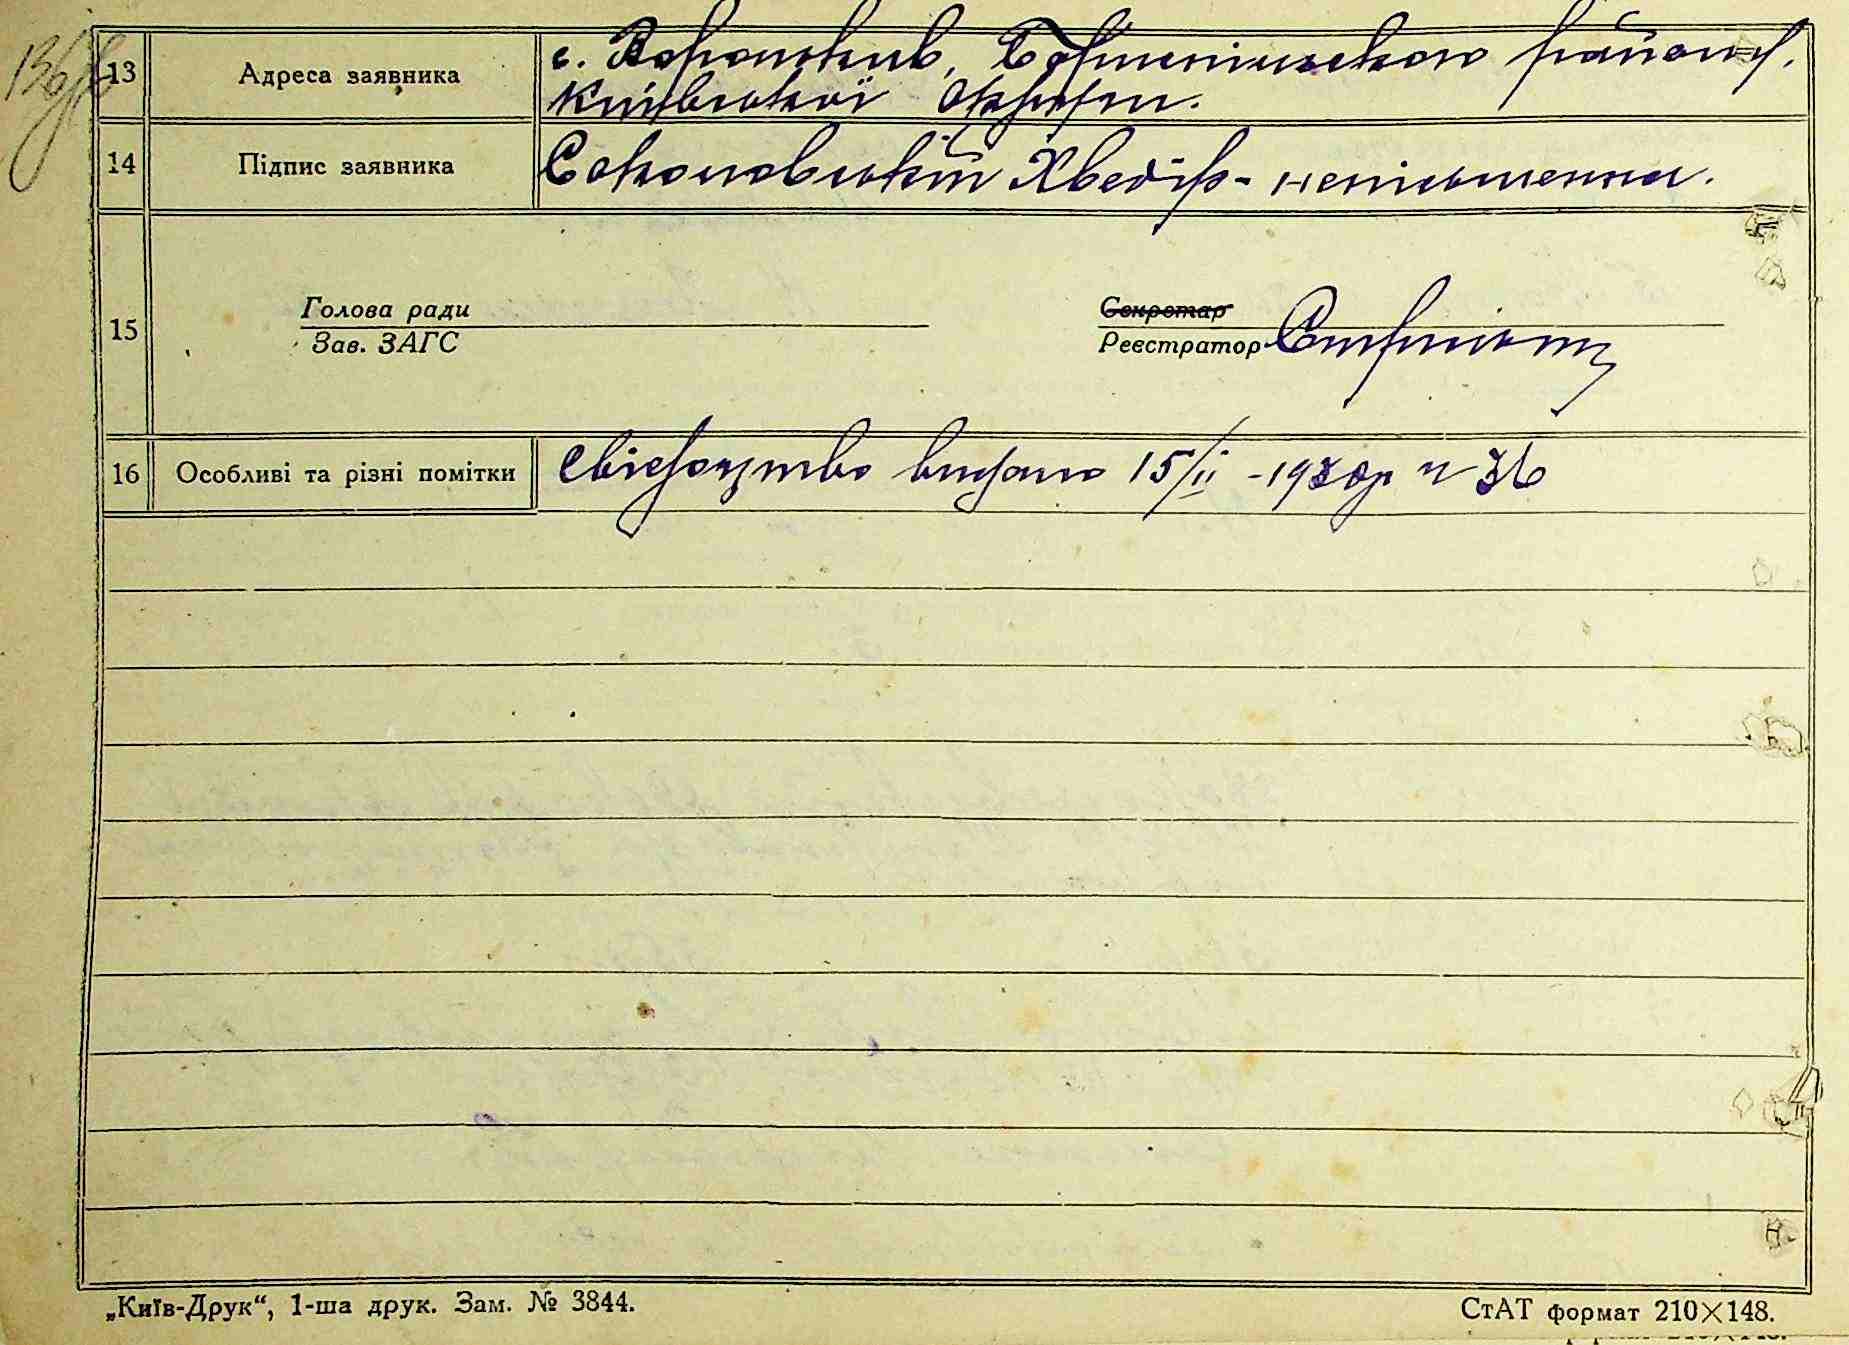 136
13 Адреса заявника с. Вороньків, Бориспільського району,
Київської округи.
14 Підпис заявника Соколовський Хведір - неписьменний.
15 Голова ради Секретар
Зав. ЗАГС Реєстратор
16 Особливі та різні помітки Свідоцтво видано 15/II - 1930р № 36
„Київ-Друк“, 1-ша друк. Зам. № 3844. СтАТ формат 210×148.